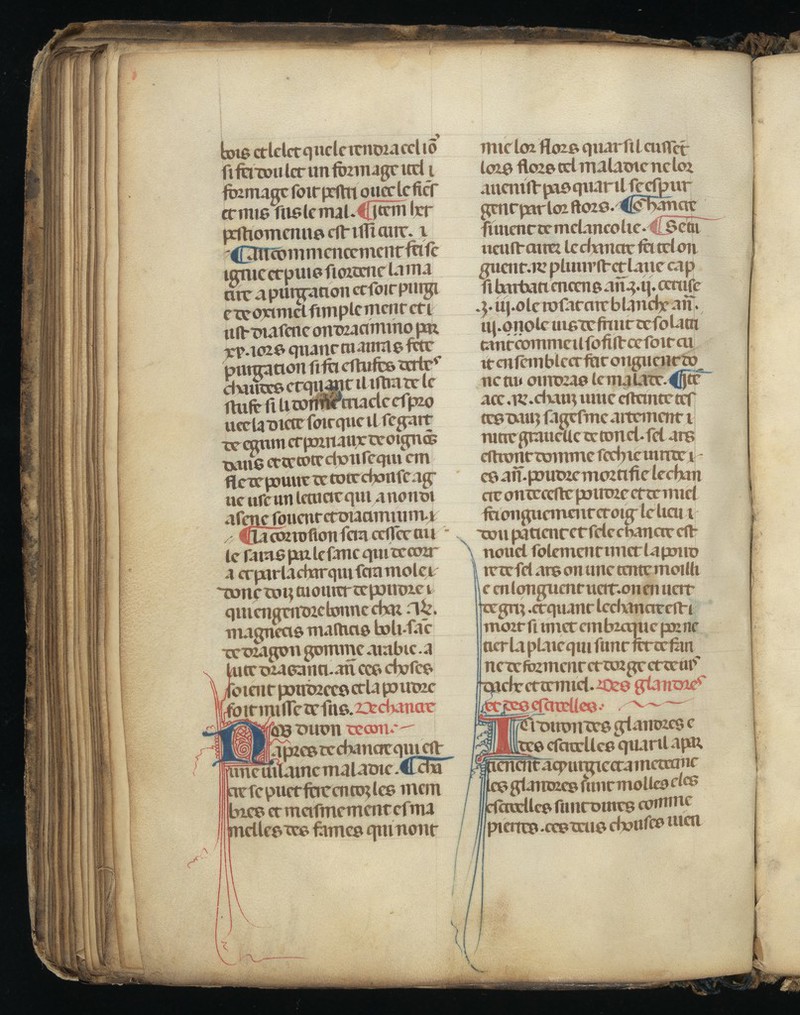 bois et lelet q̃ uele tendra cel iõ
si fei dou let un formage itel i
formage soit pestri ouec le fiẽs
et mis sus le mal. ¶ item her
pestiomenus est issi cure. i
¶ Au commencement fei se
ignie et puis si ordene la ma
tire a purgation et soit purgi
e de oximel simple ment et i
ust diasene on dracimino par
xv. iors quant tu auras fete
purgation si fei estufes derbes
chaudes et quant il istra de le
stufe si li donne triacle espro
uee la diete soit que il se gart
de egrun et porriaux de oignõs
daus et de tote chouse qui em
fle de pouure de tote chouse ag
ue use un letuere qui a non di
asene souent et diacimium. i
¶ La corrosion sera cessee tu
le saras par le sanc qui decorr
a et par la char qui sera mole i
donc dois tu ouurer de poudre i
qui engendre bonne char. ℞.
magnecis masticis boli. sãc
de dragon gomme arabic. a
lute draganti. añ ces choses
soient poudrees et la poudre
soit misse de sus. De chancre
Nos diron decon
dapres de chancre qui est
une uilaine maladie. ¶ cha
cre se puet fere en toz les mem
bres et meismement es ma
melles des fames qui nont
mie lor flors quar sil eusset
lors flors tel maladie ne lor
auenist pas quar il se espur
gent par lor flors. ¶ Chancre
si uient de melancolie. ¶ Se tu
ueust curer le chancre fei tel on
guent. ℞ plum arst et laue cap
si barbati encens añ ʒ. ij. ceruse
ʒ. iij. ole rosat cire blanche añ.
iij. on ole uis de fruit de solatri
tant comme il sofist ce soit cu
it ensemble et fait onguent do
ne tu oindras le malade. ¶ Ite
ace. ℞. chauz uiue esteinte tes
tes dauz sagesme artement i
nitre grauelle de tonel. sel ars
estront domme sechie uirde i
es añ. poudre mortifie le chan
cre on de ceste poudre et de miel
fei onguement et oig le lieu i
dou patient et se le chancre est
nouel solement i met la poud
re de sel ars on une tente moilli
e en longuent uert. on en uert
de gris. et quant le chancre est i
mort si i met embroque por ne
tier la plaie qui sunt fet de fari
ne de forment et dorge et de ius
dache et de miel. Des glandres
et des escroelles.
Ici diron des glandres e
des escroelles quar il apar
tienent a cyrurgie et a medecine
les glandres sunt molles et les
escroelles sunt dures comme
pierres. ces deus chouses uien